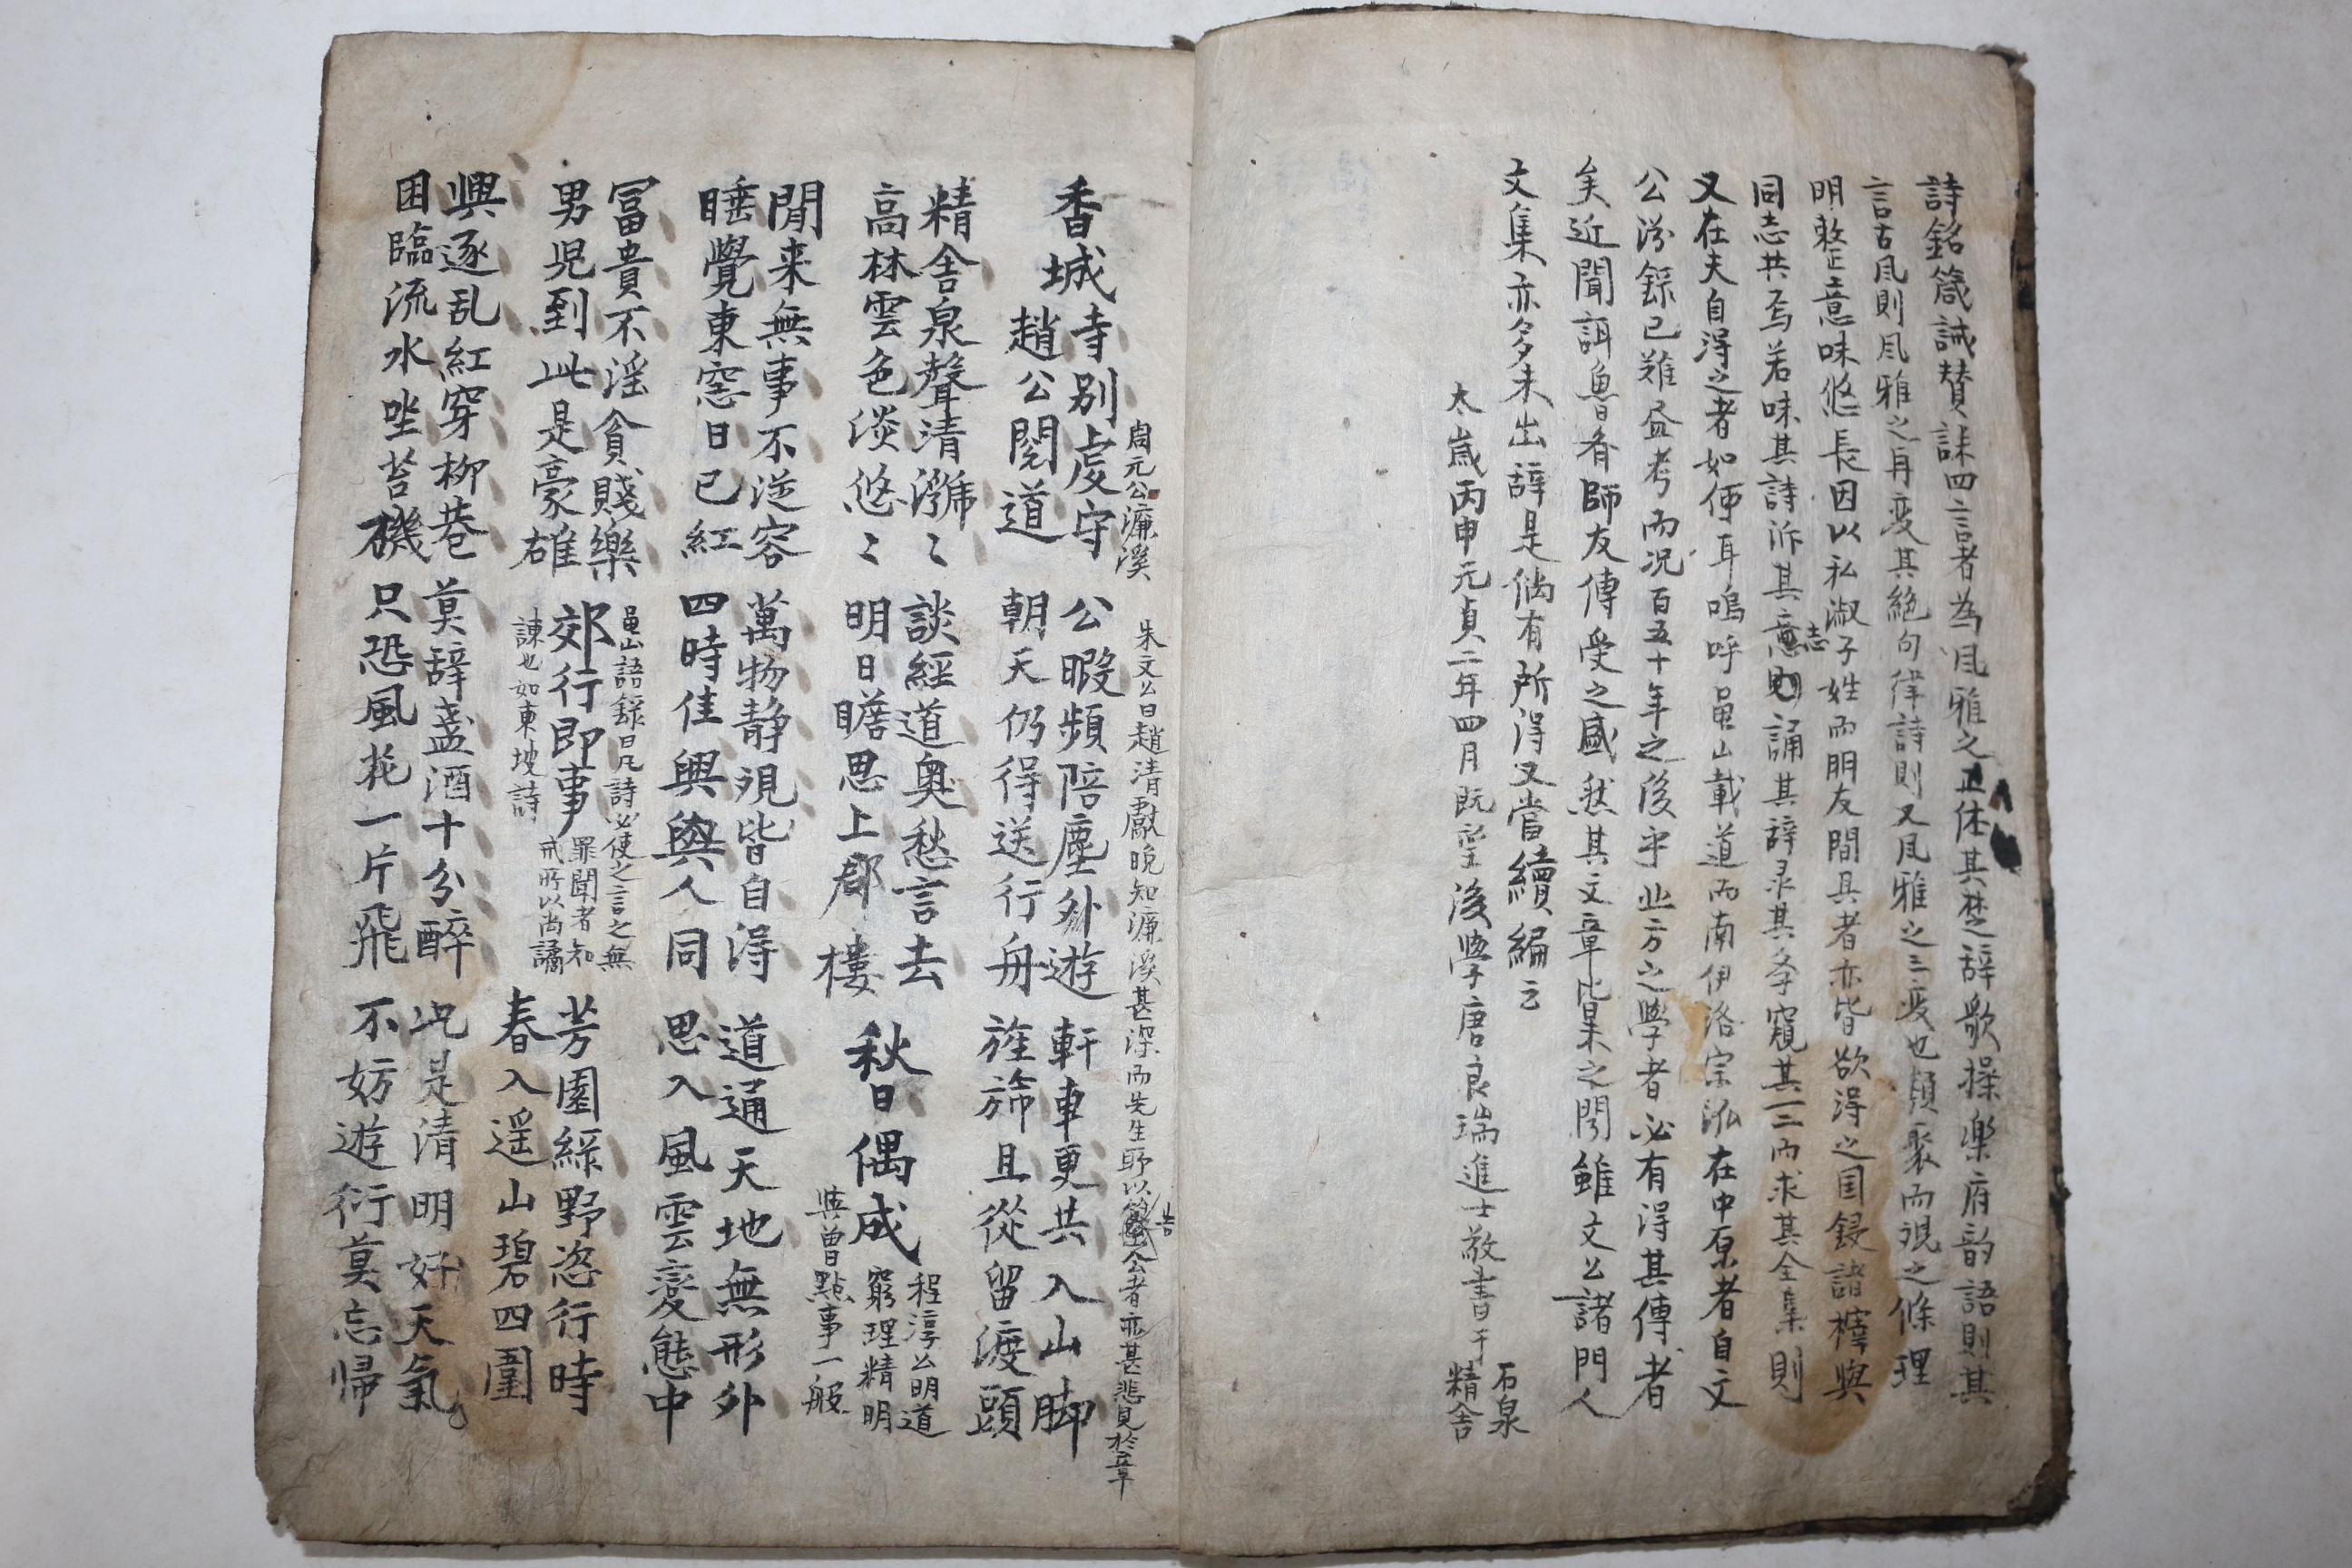 詩銘箴誡賛誄四言者為風雅之正体其楚辞歌操楽府韵語則其
言古風則風雅之再変其絶句律詩則又風雅之三変也類聚而覌之條理
明整意味悠長因以私淑子姓而朋友間具者亦皆欲淂之囯鋟諸梓與
同志共焉若味其詩泝其意志則誦其辞录其条窺其一二而求其全集則
又在夫自淂之者如何耳嗚呼黽山載道而南伊洛宗派在中原者自文
公汾録已难尽考而况百五十年之後乎此方之學者必有淂其傳者
矣近聞詳魯斉師友傳受之盛然其文章皆杲之聞雖文公諸門人
文集亦多多未出辞是倘有所淂又當續編云
太歳丙申元貞二年四月既望後學唐良瑞進士敬書于
石泉
精舎
周元公濂溪
朱文公曰趙清獻晚知濂溪甚深而先生所以告公者亦甚悲見於章
香城寺别虔守
趙公閱道
公暇頻陪塵外遊
朝天仍得送行舟
軒車更共入山脚
旌旆且從留渡頭
精舍泉聲清㶁〻
高林雲色淡悠〻
談經道奥愁言去
明日瞻思上郡樓
秋日偶成
程淳公明道
窮理精明
與曽點事一般
閒来無事不従容
睡覺東窓日已紅
萬物静覌皆自淂
四時佳興與人同
道通天地無形外
思入風雲變態中
冨貴不滛貧賤樂
男児到此是豪雄
郊行即事
黽山語録曰凡詩必使之言之無
罪聞者知
戒所以尚譎
諫也如東坡詩
芳園綠野恣行時
春入遥山碧四圍
興逐乱紅穿柳巷
困臨流水坐苔機
莫辞盞酒十分醉
只恐風花一片飛
况是清明好天氣
不妨遊衍莫忘帰